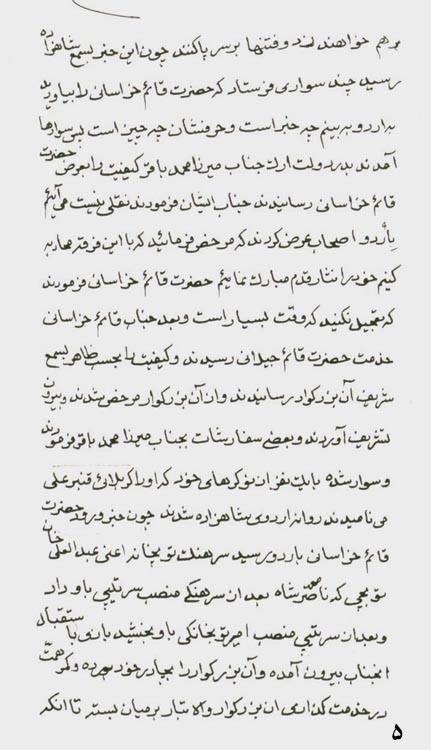 برهم خواهند زد و فتنها بر سر پا کنند چون این خبر بسمع شاهزاده
رسید چند سواری فرستاد که حضرت قائم خراسانی را بیاورید
به اردو به بینم چه خبر است و حرفشان چه چیز است پس سوارها
آمدند بدر دولت ارک جناب میرزا محمد باقر کیفیت را بعرض حضرت
قائم خراسانی رسانیدند جناب ایشان فرمودند نقلی نیست می آیم
باردو اصحاب عرض کردند که مرخص فرمائید که با این فرقه محاربه
کنیم خود را نثار قدم مبارک نمائیم حضرت قائم خراسانی فرمودند
که تعجیل نکنید که وقت بسیار است و بعد جناب قائم خراسانی
خدمت حضرت قائم جیلانی رسیدند و کیفیت را بحسب ظاهر بسمع
شریف آن بزرکوار رسانیدند و از آن بزرکوار مرخص شدند و بیرون
تشریف آوردند و بعضی سفارشات بجناب میرزا محمد باقر فرمودند
و سوار شده با یک نفر از نوکرهای خود که او را کربلائی قنبر علی
می نامیدند روانه اردوی شاهزاده شدند چون خبر ورود حضرت
قائم خراسانی باردو رسید سرهنک توپخانه اعنی عبدالعلی خان
توپچی که ناصر شاه بعد از سرهنکی منصب سرتیپی باو داد
و بعد از سرتیپی منصب امیر توپخانکی باو بخشید باری با ستقبال
انجناب بیرون آمده و آن بزرکوار را بچادر خود برده و کمر همت
در خدمت کذاری ان بزرکوار والا تبار بر میان بسته تا انکه
۵